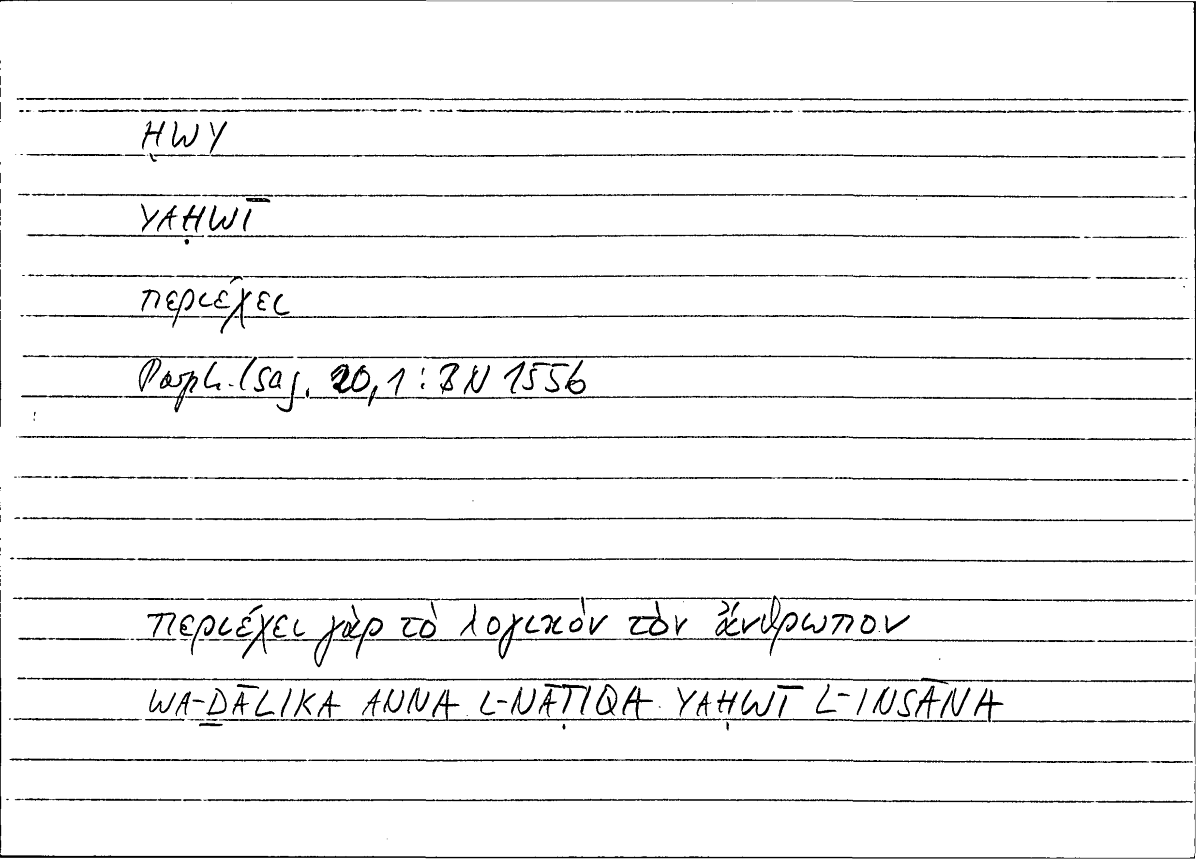 ḤWY
YAḤWĪ
περιέχει
Porph. Isag. 20,1 : BN 155b
περιέχει γὰρ τὸ λογικὸν τὸν ἄνθρωπον
WA-ḎĀLIKA ANNA L-NĀṬIQA YAḤWĪ L-INSĀNA